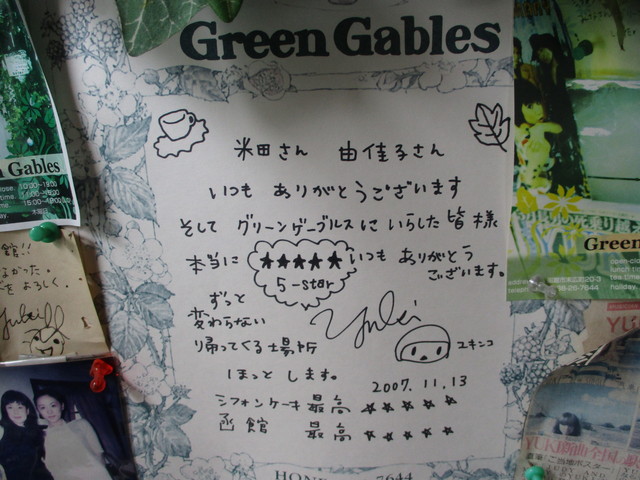 Green Gables
米田さん 由佳子さん
いつも ありがとうございます
そして グリーンゲーブルスに いらした 皆様
本当に ★★★★★ いつも ありがとう
ございます。
5-star
ずっと
変わらない
帰ってくる場所
Yuki
ユキンコ
ほっと します。
2007.11.13
シフォンケーキ 最高 ★★★★★
函館 最高 ★★★★★
7644
n Gables
10:00~19:00
館!!
よかった。
よろしく。
Green
open-
lunch
tea time
holiday.
20-3
26-7644
YU
YUKI